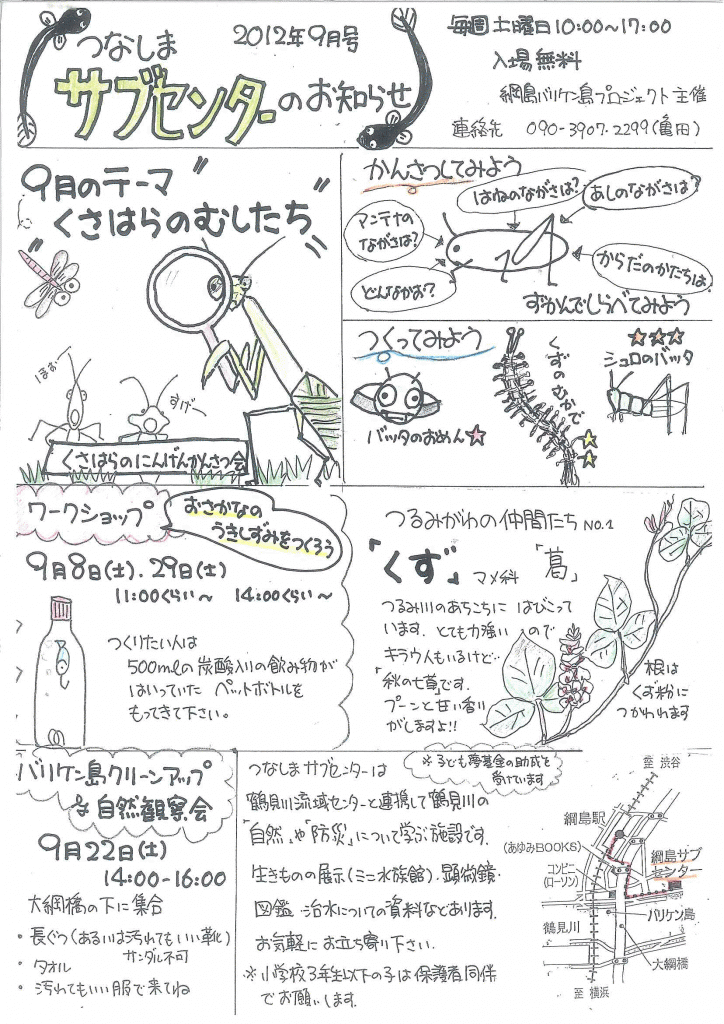 つなしま
2012年9月号
サブセンターのお知らせ
毎週土曜日10:00~17:00
入場無料
綱島バリケン島プロジェクト主催
連絡先 090-3907-2299(亀田)
9月のテーマ
"くさはらのむしたち"
ほぉ
すげー
くさはらのにんげんかんさつ会
かんさつしてみよう
はねのながさは?
あしのながさは?
マンテナ
のながさは?
どんなかお?
からだのかたちは
ずかんでしらべてみよう
つくってみよう
バッタのおめん★
くずのむかで
★★
★★★
シュロのバッタ
ワークショップ
おさかなの
うきしずみをつくろう
9月8日(土).29日(土)
11:00くらい~ 14:00くらい~
つくりたい人は
500mlの炭酸入りの飲み物が
はいっていた ペットボトルを
もってきて下さい。
つるみがわの仲間たち NO.1
「くず」 マメ科 「葛」
つるみ川のあちこちに はびこって
います. とても力強い ので
キラウ人もいるけど…
「秋の七草」です.
プーンと甘い香り
がしますよ!!
根は
くず粉に
つかわれます
バリケン島クリーンアップ
& 自然観察会
9月22日(土)
14:00-16:00
大綱橋の下に集合
・長ぐつ(あるいは汚れてもいい靴)
サンダル不可
・タオル
・汚れてもいい服で来てね
※子ども夢基金の助成を
受けています
つなしまサブセンターは
鶴見川流域センターと連携して鶴見川の
「自然」や「防災」について学ぶ施設です.
生きものの展示(ミニ水族館).顕微鏡・
図鑑・治水についての資料などあります.
お気軽にお立ち寄り下さい.
※小学校3年生以下の子は保護者同伴
でお願いします.
至 渋谷
綱島駅
(あゆみBOOKS)
コンビニ
(ローソン)
綱島サブ
センター
バリケン島
鶴見川
大綱橋
至 横浜